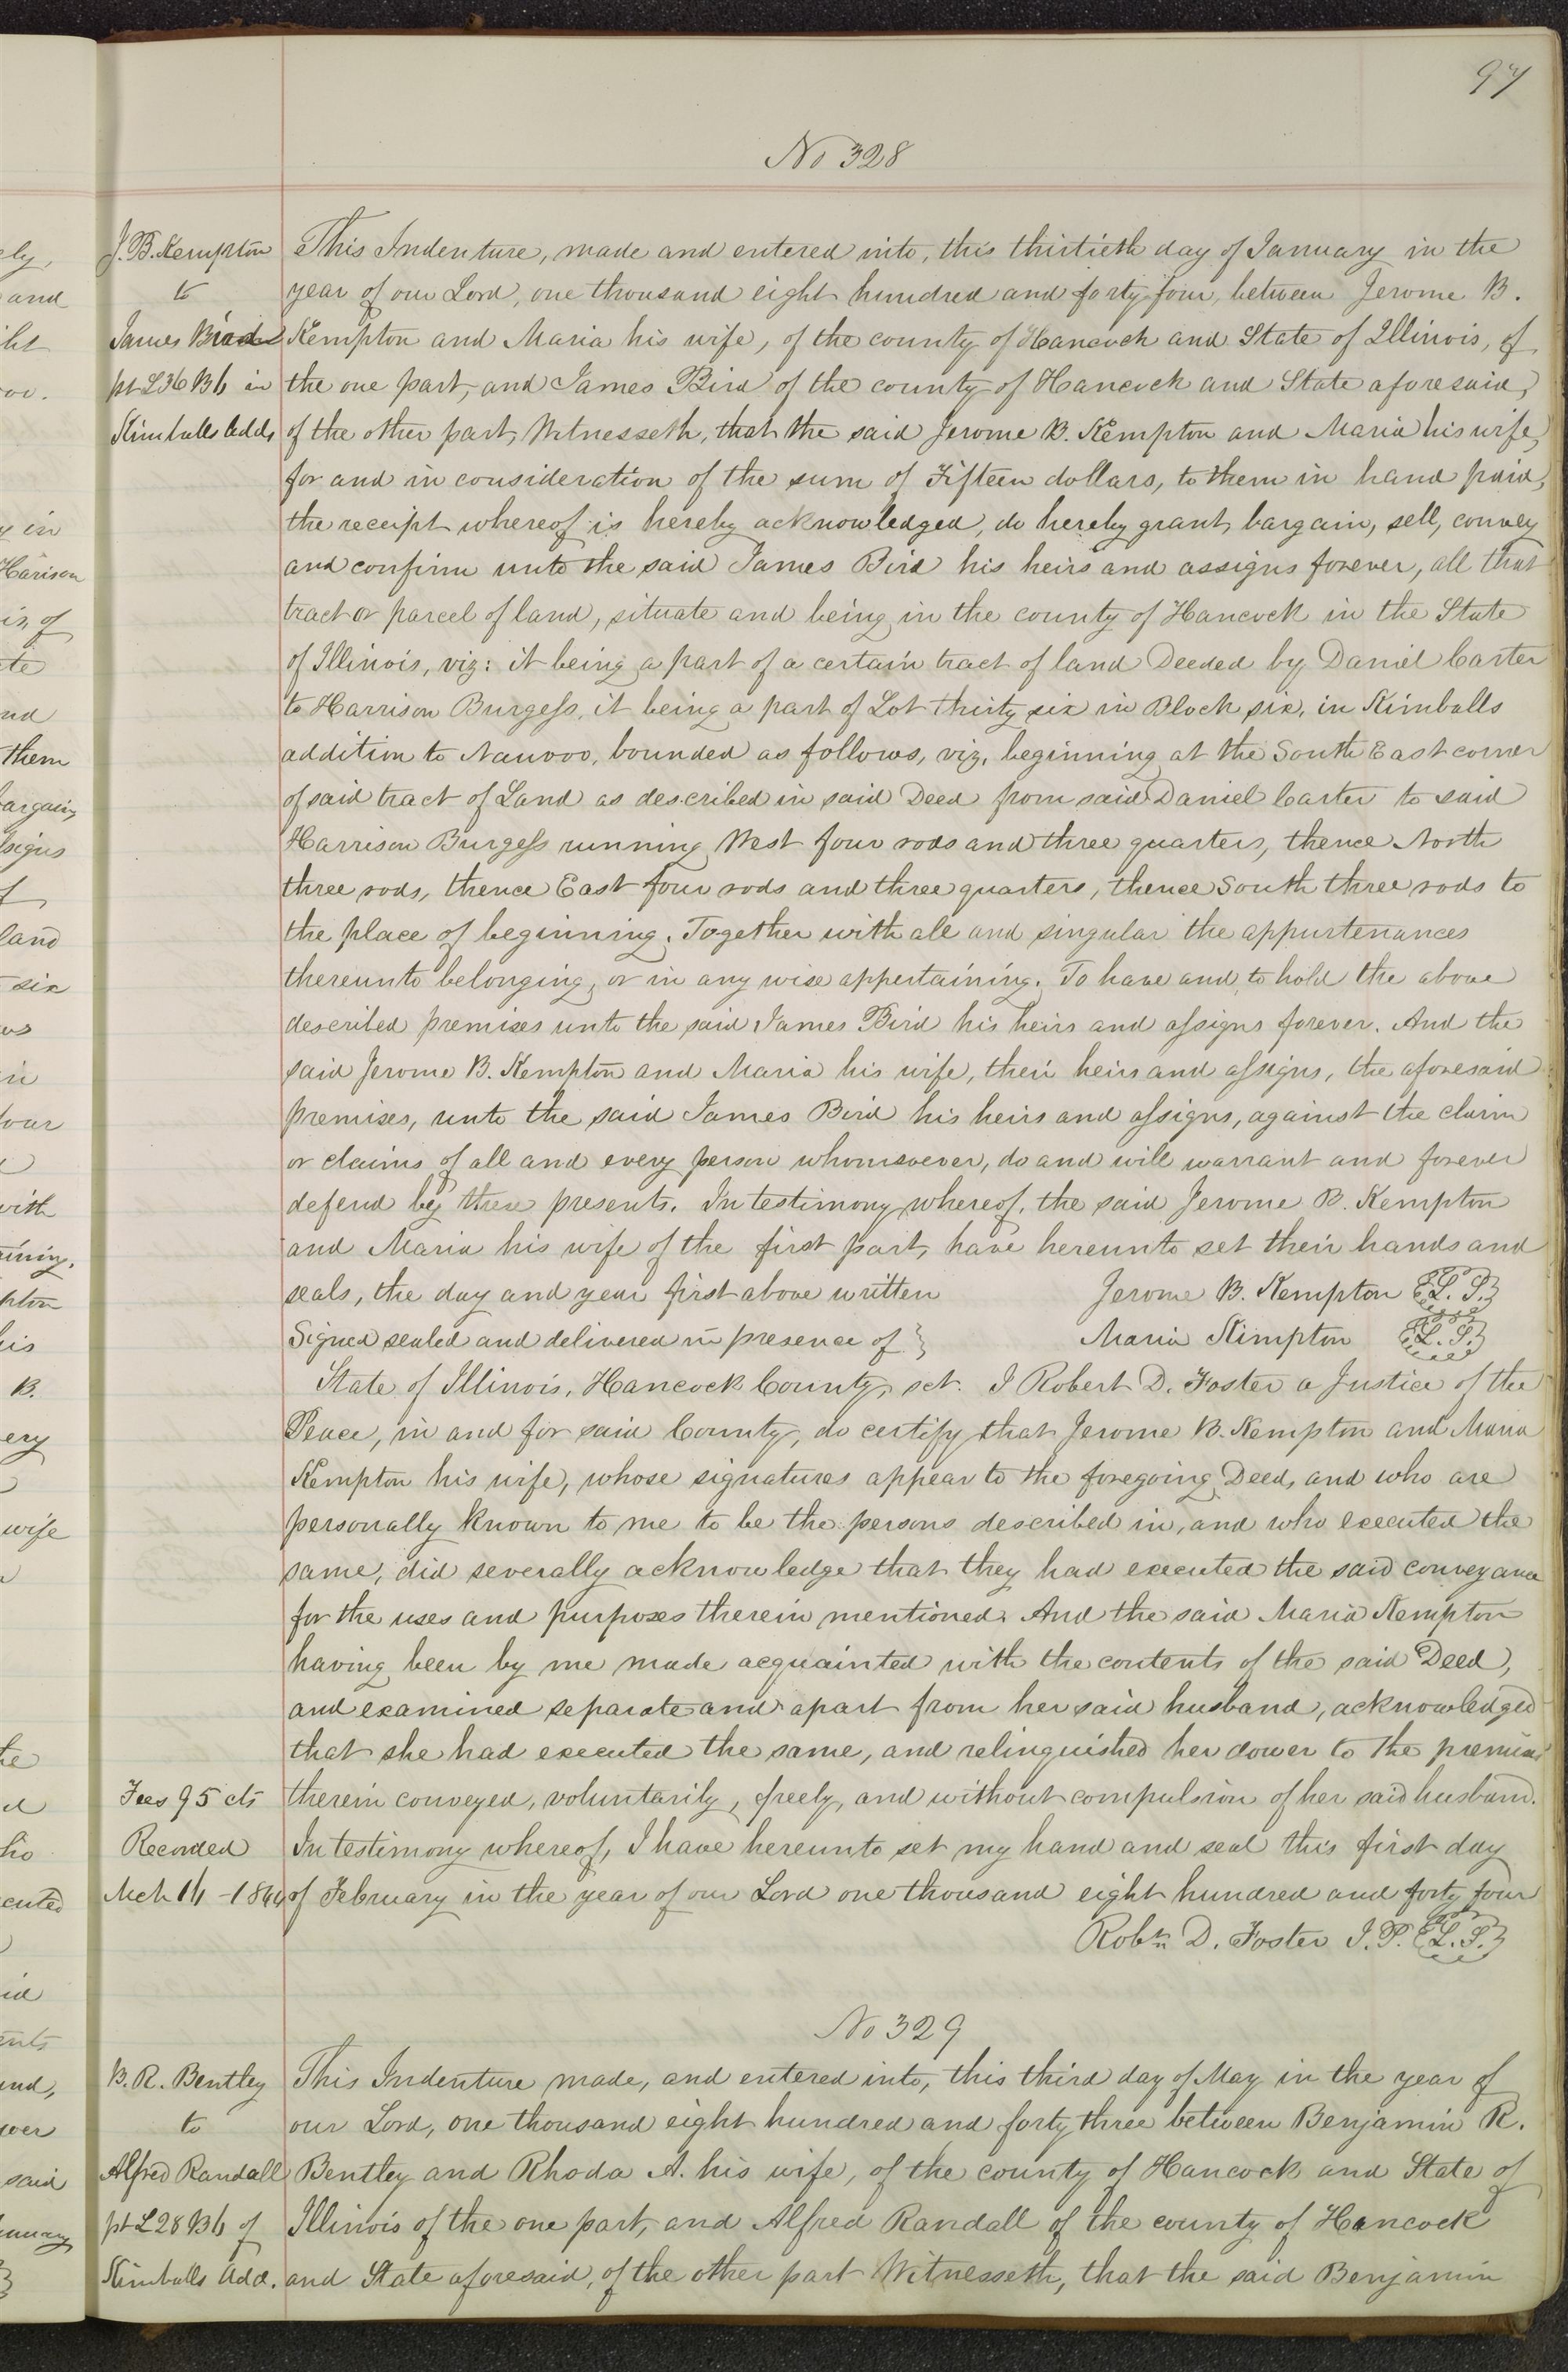 97
No 328
J. B. Kempton
to
James Bird
pt L 36 B 6 in
Kimballs Add,
This Indenture, made and entered into, this thirtieth day of January in the
year of our Lord, one thousand eight hundred and forty four, between Jerome B.
Kempton and Maria his wife, of the county of Hancock and State of Illinois, of
the one part, and James Bird of the county of Hancock and State aforesaid,
of the other part, Witnesseth, that the said Jerome B. Kempton and Maria his wife,
for and in consideration of the sum of Fifteen dollars, to them in hand paid,
the receipt whereof is hereby acknowledged, do hereby grant, bargain, sell, convey
and confirm unto the said James Bird his heirs and assigns forever, all that
tract or parcel of land, situate and being in the county of Hancock in the State
of Illinois, viz: it being a part of a certain tract of land Deeded by Daniel Carter
to Harrison Burgess, it being a part of Lot thirty six in Block six, in Kimballs
addition to Nauvoo, bounded as follows, viz, beginning at the South East corner
of said tract of Land as described in said Deed from said Daniel Carter to said
Harrison Burgess running West four rods and three quarters, thence North
three rods, thence East four rods and three quarters, thence South three rods to
the place of beginning. Together with all and singular the appurtenances
thereunto belonging, or in any wise appertaining. To have and to hold the above
described premises unto the said James Bird his heirs and assigns forever. And the
said Jerome B. Kempton and Maria his wife, their heirs and assigns, the aforesaid
premises, unto the said James Bird his heirs and assigns, against the claim
or claims of all and every person whomsoever, do and will warrant and forever
defend by these presents. In testimony whereof, the said Jerome B. Kempton
and Maria his wife of the first part, have hereunto set their hands and
seals, the day and year first above written Jerome B. Kempton {L. S.}
Signed sealed and delivered in presence of } Maria Kimpton {L. S.}
State of Illinois, Hancock County, sct. I Robert D. Foster a Justice of the
Peace, in and for said County, do certify that Jerome B. Kempton and Maria
Kempton his wife, whose signatures appear to the foregoing Deed, and who are
personally known to me to be the persons described in, and who executed the
same, did severally acknowledge that they had executed the said conveyance
for the uses and purposes therein mentioned. And the said Maria Kempton
having been by me made acquainted with the contents of the said Deed,
and examined separate and apart from her said husband, acknowledged
that she had executed the same, and relinquished her dower to the premises
therein conveyed, voluntarily, freely, and without compulsion of her said husband.
In testimony whereof, I have hereunto set my hand and seal this first day
of February in the year of our Lord one thousand eight hundred and forty four
Fees 95 cts
Recorded
Mch 16 - 1844
Robt. D. Foster J. P. {L. S.}
No 329
B. R. Bentley
to
Alfred Randall
pt L 28 B 6 of
Kimballs Add.
This Indenture made, and entered into, this third day of May in the year of
our Lord, one thousand eight hundred and forty three between Benjamin R.
Bentley and Rhoda A. his wife, of the county of Hancock and State of
Illinois of the one part, and Alfred Randall of the county of Hancock
and State aforesaid, of the other part Witnesseth, that the said Benjamin